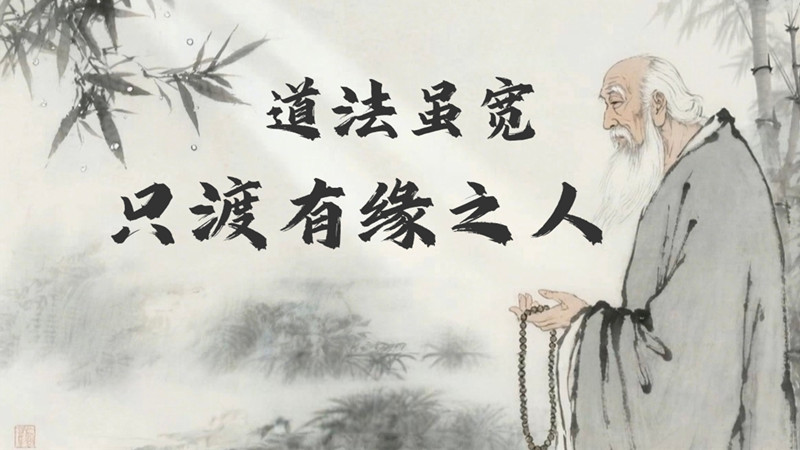 道法虽宽
只渡有缘之人